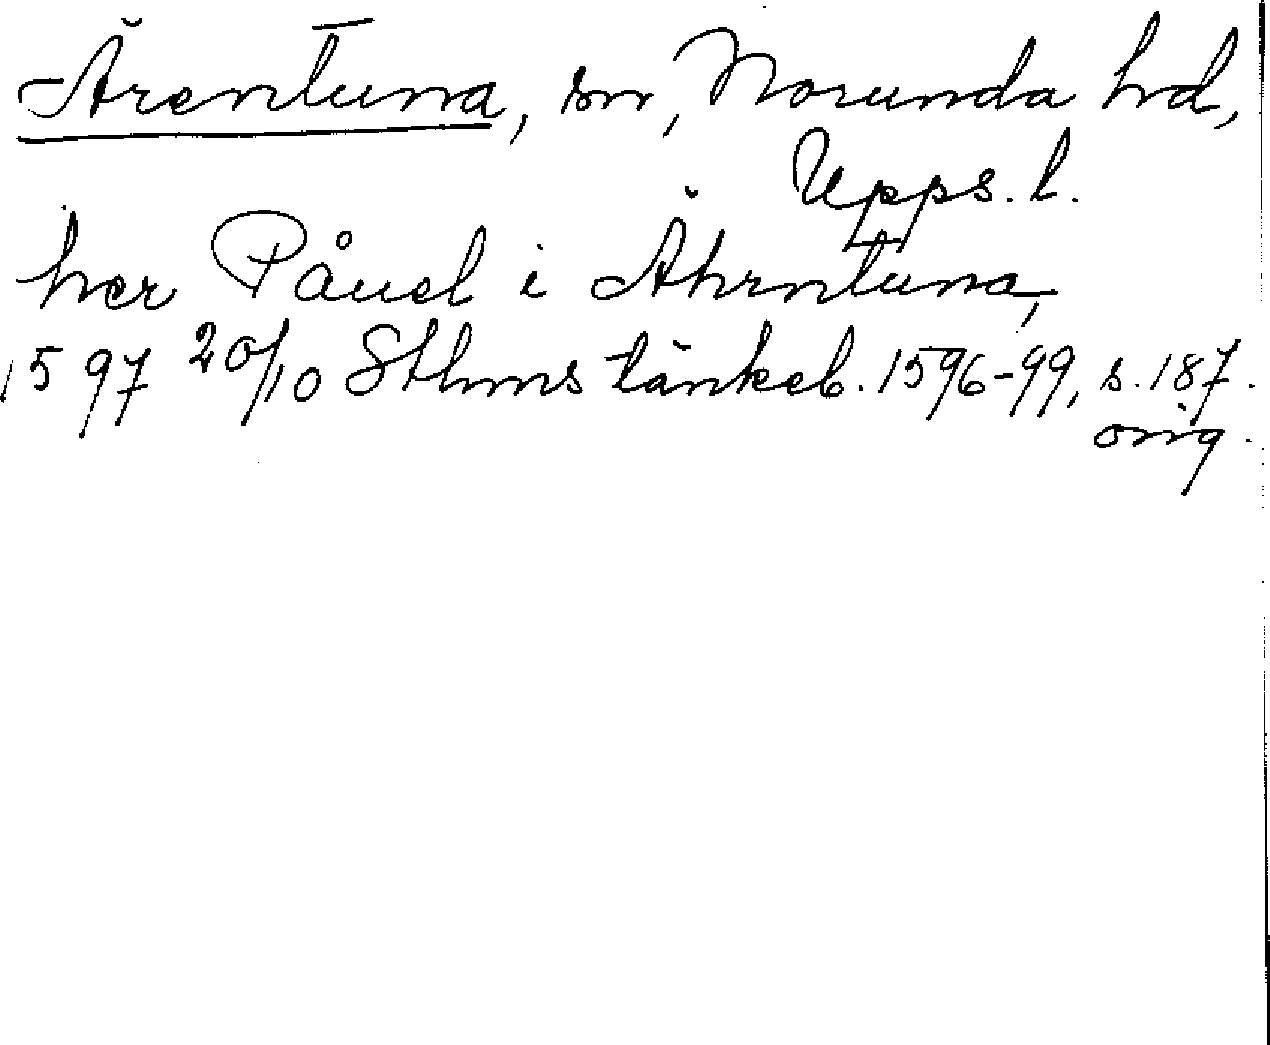 Ärentuna, sn, Norunda hd,
Upps. l.
her Påuel i Ährntuna,
1597 20/10 Sthms tänkeb. 1596-99, s. 187.
orig.